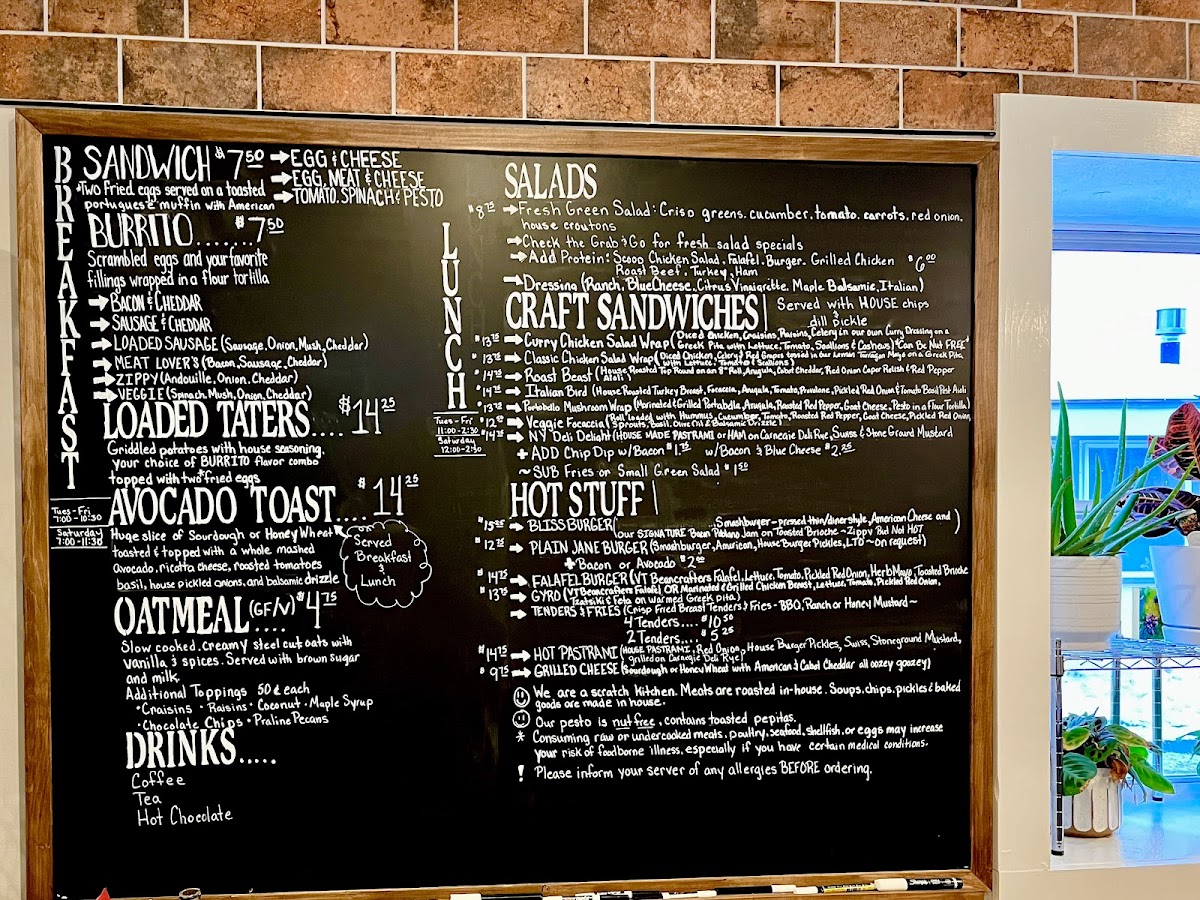 BREAKFAST
SANDWICH $7.50 → EGG & CHEESE
→ EGG, MEAT & CHEESE
→ TOMATO, SPINACH & PESTO
*Two fried eggs served on a toasted
portuguese muffin with American
BURRITO....... $7.50
Scrambled eggs and your favorite
fillings wrapped in a flour tortilla
→ BACON & CHEDDAR
→ SAUSAGE & CHEDDAR
→ LOADED SAUSAGE (Sausage, Onion, Mush, Cheddar)
→ MEAT LOVER'S (Bacon, Sausage, Cheddar)
→ ZIPPY (Andouille, Onion, Cheddar)
→ VEGGIE (Spinach, Mush, Onion, Cheddar)
LOADED TATERS.... $14.25
Griddled potatoes with house seasoning,
your choice of BURRITO flavor combo
topped with two *fried eggs
Tues - Fri
7:00 - 10:30
Saturday
7:00 - 11:30
AVOCADO TOAST.... $14.25
Huge slice of Sourdough or Honey Wheat
toasted & topped with a whole mashed
avocado, ricotta cheese, roasted tomatoes
basil, house pickled onions, and balsamic drizzle
Served
Breakfast
&
Lunch
OATMEAL (GF/V) $4.75
Slow cooked, creamy steel cut oats with
vanilla & spices. Served with brown sugar
and milk
Additional Toppings 50¢ each
• Craisins • Raisins • Coconut • Maple Syrup
• Chocolate Chips • Praline Pecans
DRINKS.....
Coffee
Tea
Hot Chocolate
LUNCH
Tues - Fri
11:00 - 2:30
Saturday
12:00 - 2:30
SALADS
$8.75 → Fresh Green Salad: Crisp greens, cucumber, tomato, carrots, red onion,
house croutons
→ Check the Grab & Go for fresh salad specials
→ Add Protein: Scoop Chicken Salad, Falafel, Burger, Grilled Chicken $6.00
Roast Beef, Turkey, Ham
→ Dressing (Ranch, Blue Cheese, Citrus Vinaigrette, Maple Balsamic, Italian)
CRAFT SANDWICHES | Served with HOUSE chips
& dill pickle
$13.75 → Curry Chicken Salad Wrap (Diced Chicken, Craisins, Raisins, Celery in our own Curry Dressing on a
Greek Pita with Lettuce, Tomato, Scallions & Cashews) *Can Be Nut FREE*
$13.75 → Classic Chicken Salad Wrap (Diced Chicken, Celery & Red Grapes tossed in our Lemon Tarragon Mayo on a Greek Pita,
with Lettuce, Tomato & Scallions)
$14.75 → Roast Beast (House Roasted Top Round on an 8" Roll, Arugula, Cabot Cheddar, Red Onion Caper Relish & Red Pepper
Aioli)
$14.75 → Italian Bird (House Roasted Turkey Breast, Focaccia, Arugula, Tomato, Provolone, Pickled Red Onion & Tomato Basil Pest Aioli
$13.75 → Portobello Mushroom Wrap (Marinated & Grilled Portabella, Arugula, Roasted Red Pepper, Goat Cheese, Pesto in a Flour Tortilla)
→ Veggie Focaccia (Roll loaded with Hummus, Cucumber, Tomato, Roasted Red Pepper, Goat Cheese, Pickled Red Onion,
Sprouts, Basil, Olive Oil & Balsamic Drizzle)
$14.75 → NY Deli Delight (HOUSE MADE PASTRAMI or HAM on Carnegie Deli Rye, Swiss & Stone Ground Mustard
+ ADD Chip Dip w/Bacon $1.75 w/Bacon & Blue Cheese $2.25
~ SUB Fries or Small Green Salad $1.50
HOT STUFF |
$15.25 → BLISS BURGER ( ...Smashburger - pressed thin/diner style, American Cheese and
our SIGNATURE Bacon Poblano Jam on Toasted Brioche ~ Zippy But Not HOT )
$12.25 → PLAIN JANE BURGER (Smashburger, American, House Burger Pickles, LTO ~ on request)
+ Bacon or Avocado $2.00
$14.75 → FALAFEL BURGER (VT Beancrafters Falafel, Lettuce, Tomato, Pickled Red Onion, Herb Mayo, Toasted Brioche
→ GYRO (VT Beancrafters Falafel OR Marinated & Grilled Chicken Breast, Lettuce, Tomato, Pickled Red Onion,
Tzatziki & Feta on warmed Greek pita)
→ TENDERS & FRIES (Crisp Fried Breast Tenders & Fries - BBQ, Ranch or Honey Mustard ~
4 Tenders.... $10.50
2 Tenders.... $5.25
$14.75 → HOT PASTRAMI (HOUSE PASTRAMI, Red Onion, House Burger Pickles, Swiss, Stoneground Mustard,
grilled on Carnegie Deli Rye)
$9.75 → GRILLED CHEESE (Sourdough or Honey Wheat with American & Cabot Cheddar all oozey goozey)
☺ We are a scratch kitchen. Meats are roasted in-house. Soups, chips, pickles & baked
goods are made in house.
☺ Our pesto is nut free, contains toasted pepitas.
* Consuming raw or undercooked meats, poultry, seafood, shellfish, or eggs may increase
your risk of foodborne illness, especially if you have certain medical conditions.
! Please inform your server of any allergies BEFORE ordering.